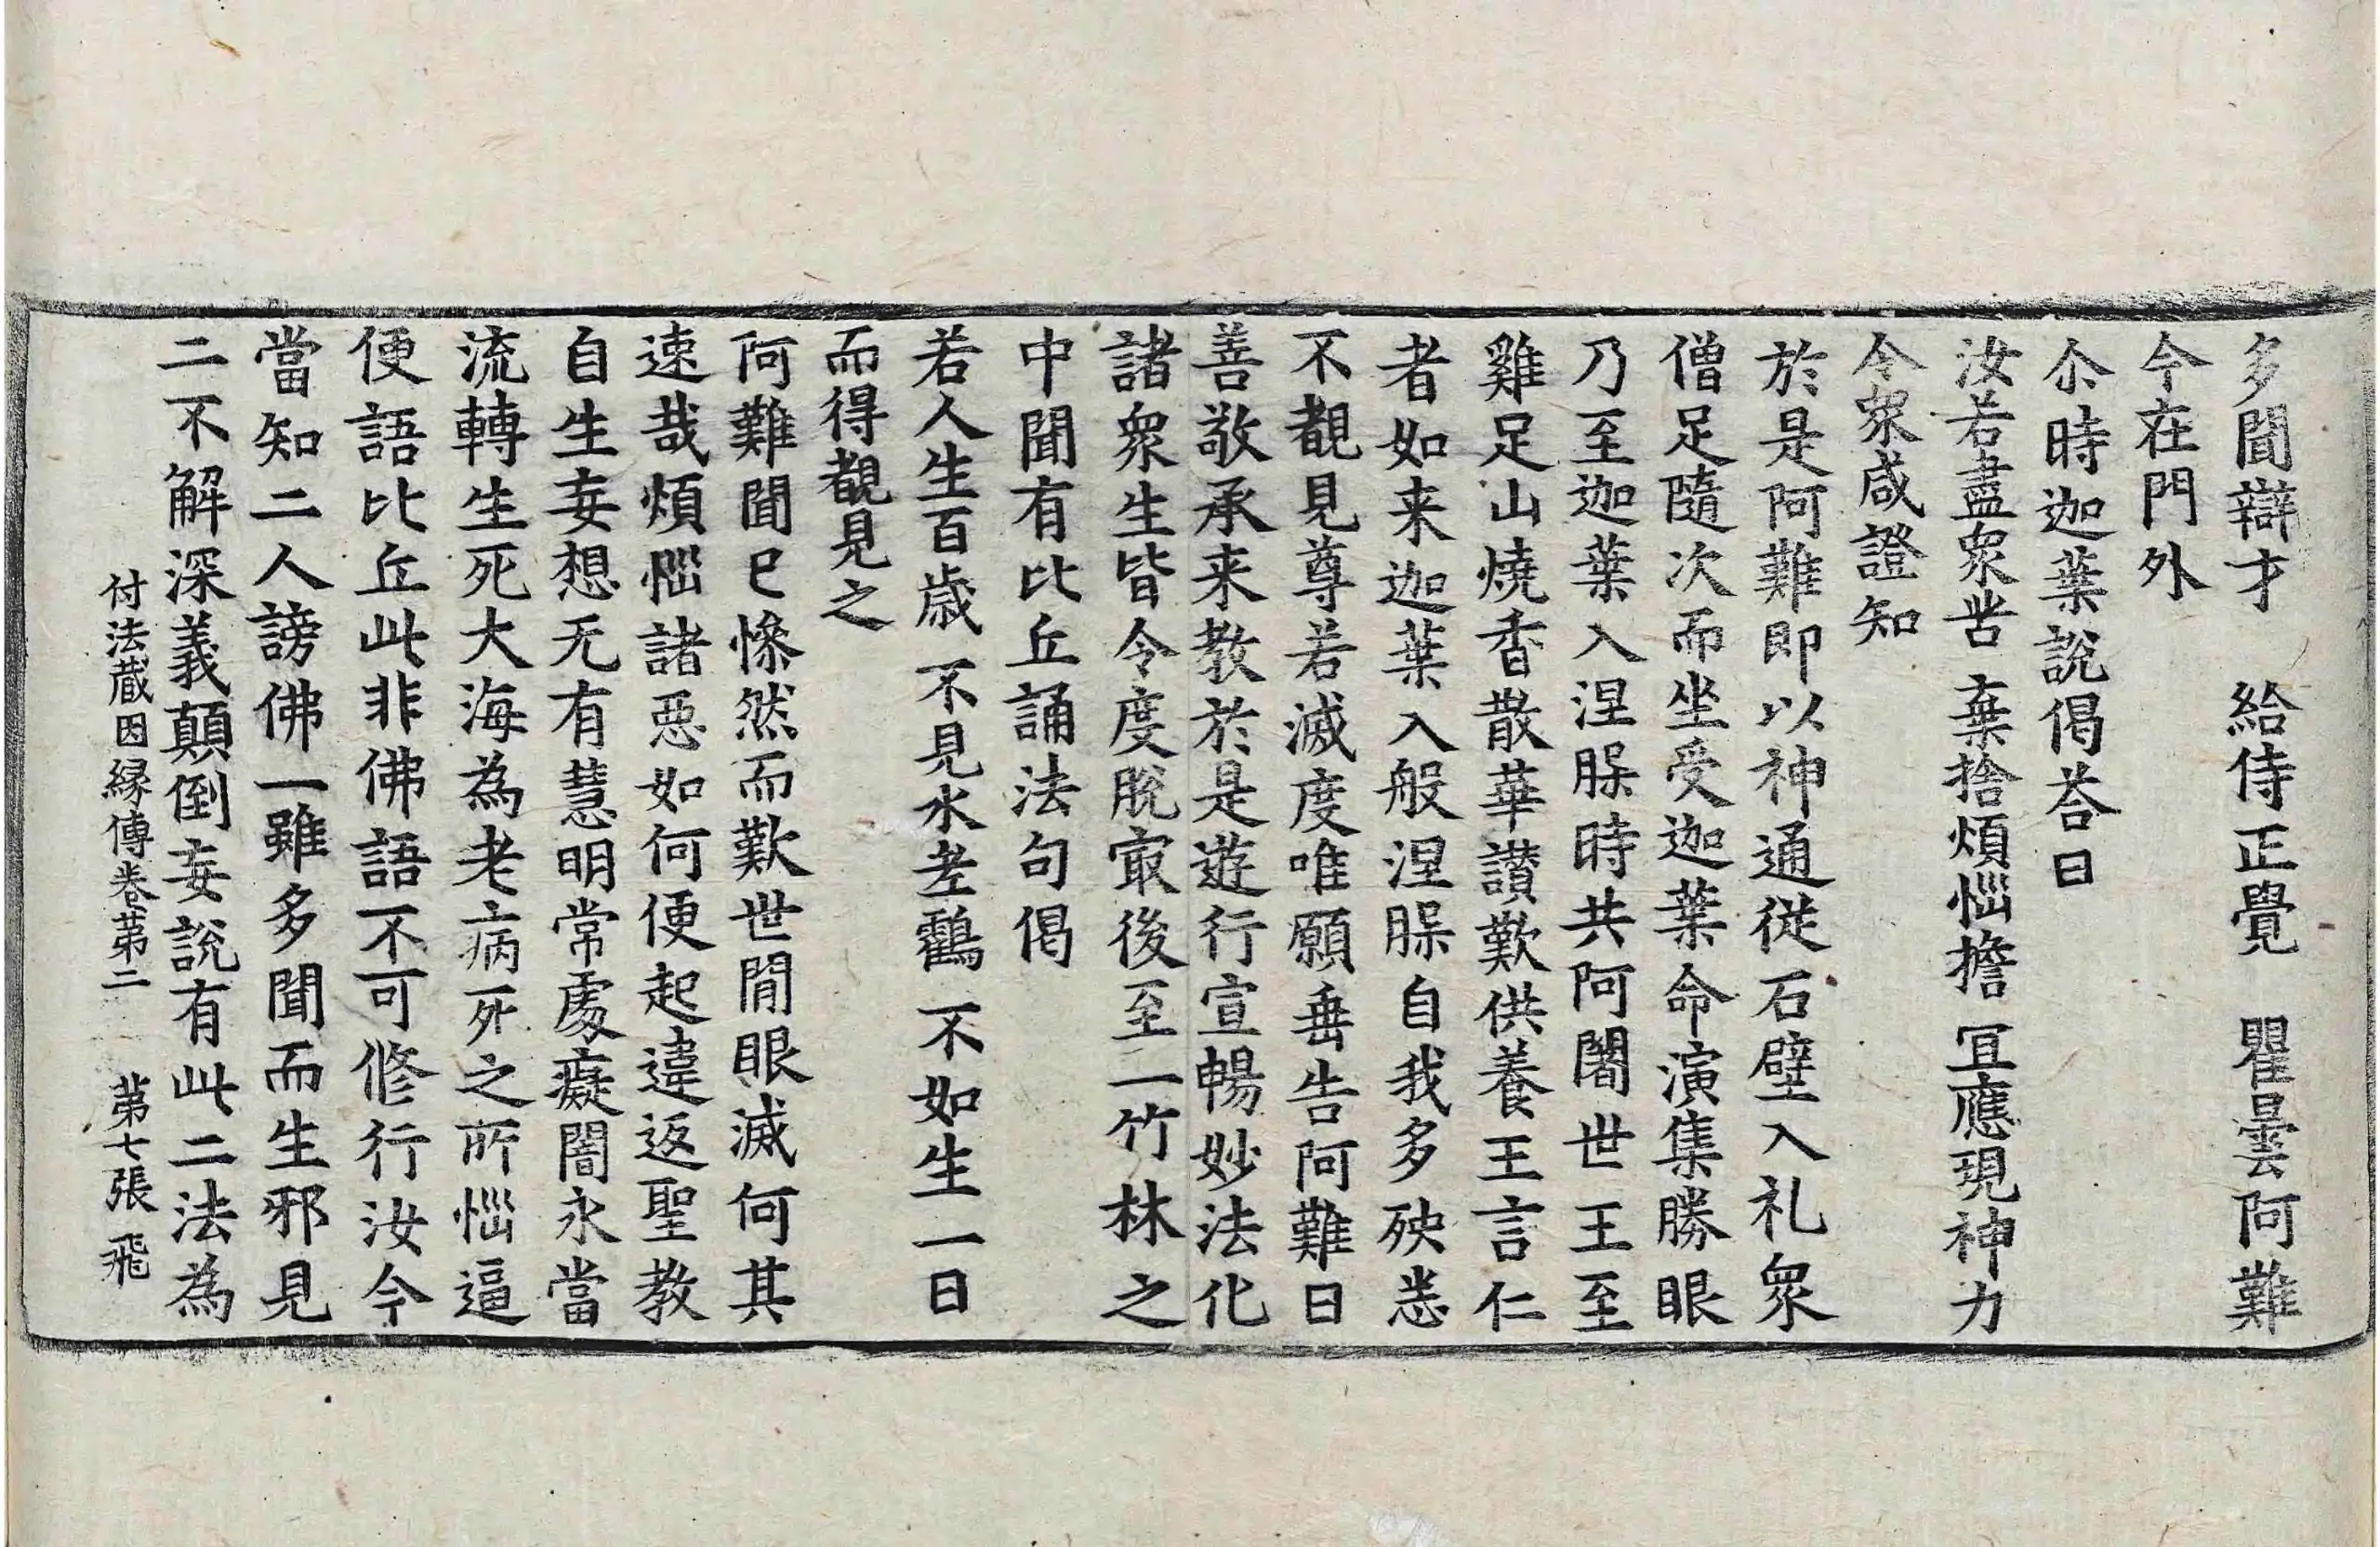 多聞辯才　給侍正覺　瞿曇阿難
今在門外
尒時迦葉說偈荅曰
汝若盡衆苦　棄捨煩惱擔　冝應現神力
令衆咸證知
於是阿難即以神通從石壁入礼衆
僧足隨次而坐受迦葉命演集勝眼
乃至迦葉入涅槃時共阿闍世王至
雞足山燒香散華讃歎供養王言仁
者如来迦葉入般涅槃自我多殃恙
不覩見尊若滅度唯願垂告阿難曰
善敬承来教於是遊行宣暢妙法化
諸衆生皆令度脫㝡後至一竹林之
中聞有比丘誦法句偈
若人生百歲　不見水老鸖　不如生一日
而得覩見之
阿難聞已慘然而歎世間眼滅何其
速哉煩惱諸惡如何便起違返聖教
自生妄想无有慧明常處癡闇永當
流轉生死大海為老病死之所惱逼
便語比丘此非佛語不可修行汝今
當知二人謗佛一雖多聞而生邪見
二不解深義顛倒妄說有此二法為
付法藏因縁傳卷苐二　苐七張　飛